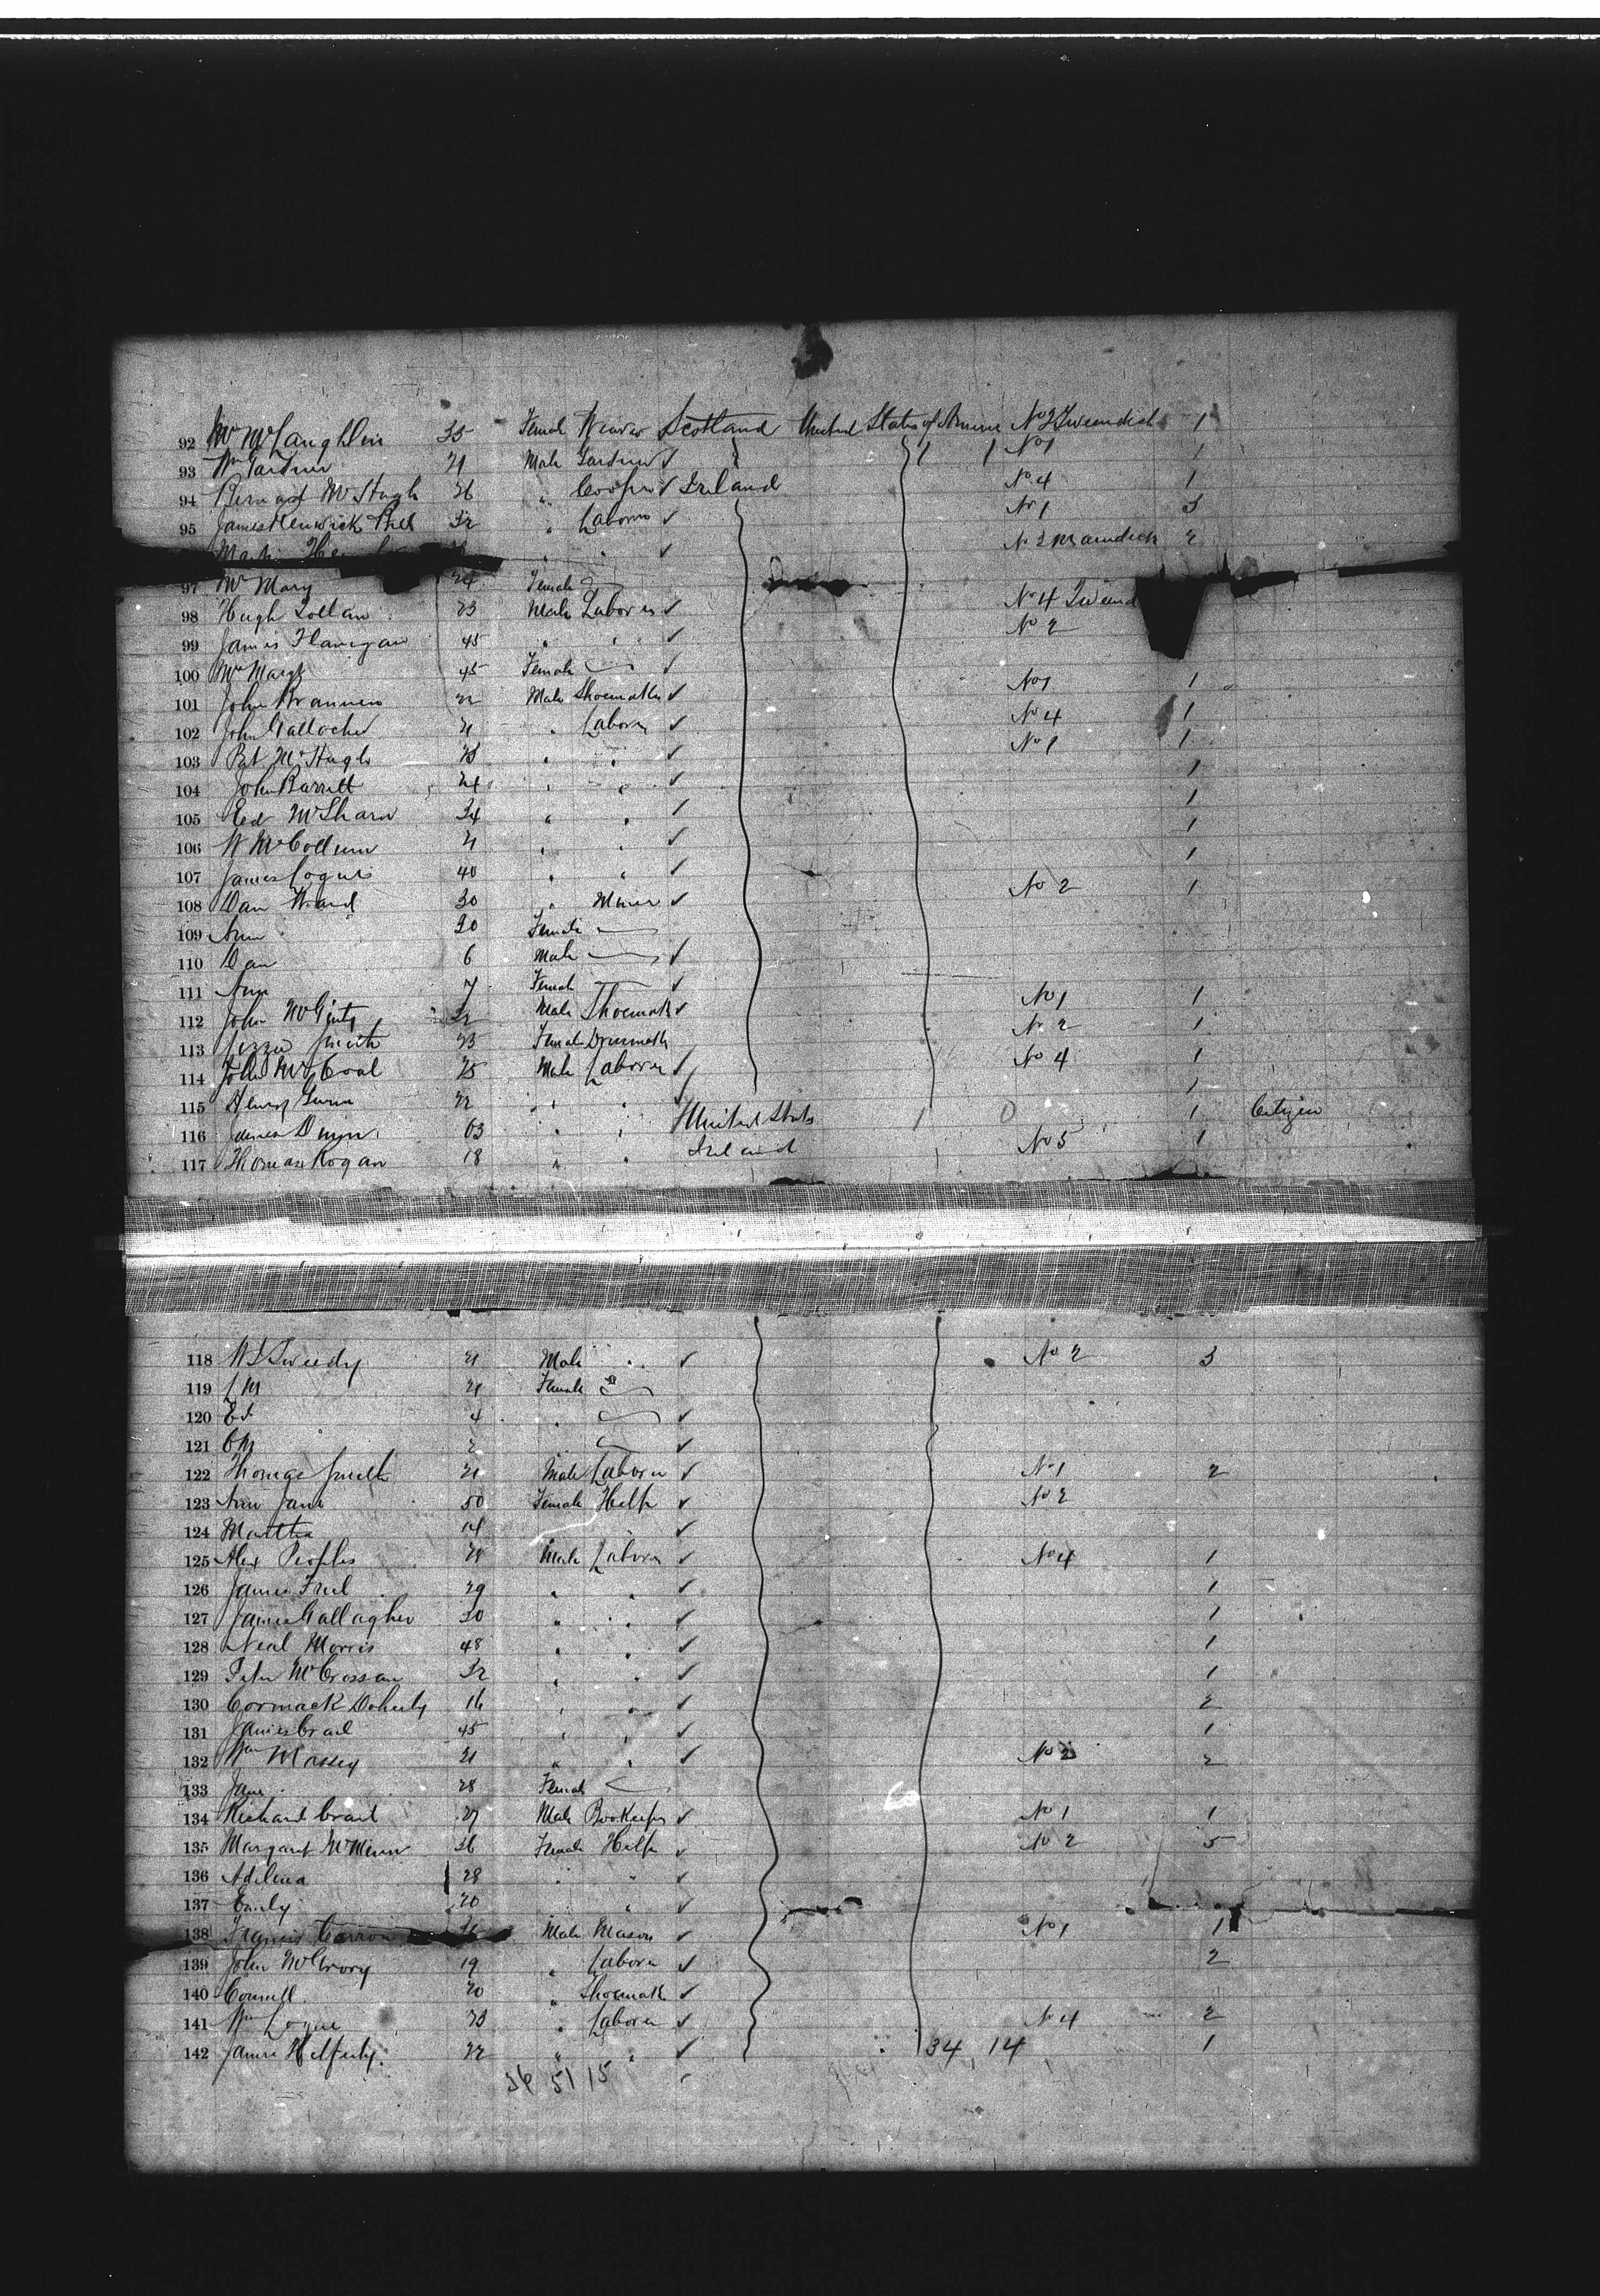 92 Mrs McLaughlin 35 Female Weaver Scotland United States of America No 2 1
93 Wm Gardner 21 Male Gardner ✓ No 1 1
94 Bernard McHugh 26 " Cooper ✓ Ireland No 4 1
95 James Renwick 32 " Laborer ✓ No 1 3
" " ✓ No 2 2
97 Mrs Mary 24 Female
98 Hugh 23 Male Laborer ✓ No 4
99 James Flanigan 45 " " ✓ No 2
100 Mrs Margt 45 Female ✓
101 John Brannen 22 Male Shoemaker ✓ No 1 1
102 John Gallocher 21 " Laborer ✓ No 4 1
103 Pat McHugh 23 " " ✓ No 1 1
104 John Barrett 24 " " ✓ 1
105 Ed McSharn 34 " " ✓ 1
106 W McCollum 21 " " ✓ 1
107 James 40 " " ✓ 1
108 Dan Ward 30 " Miner ✓ No 2 1
109 Ann 30 Female
110 Dan 6 Male ✓
111 Ann 7 Female ✓
112 John McGinty 32 Male Shoemak ✓ No 1 1
113 Lizzie Smith 23 Female Dressmak No 2 1
114 John McCoal 25 Male Laborer ✓ No 4 1
115 Henry Gunn 22 " " ✓ 1
116 James 63 " " United States 1 0 1 Citizen
117 Thomas Kogan 18 " " Ireland No 5 1
118 W J Tweedy 21 Male " ✓ No 2 3
119 L M 21 Female
120 Ed 4 " ✓
121 2 ✓
122 Thomas Smith 21 Male Laborer ✓ No 1 2
123 Ann Jane 50 Female Help ✓ No 2
124 Martha 14 ✓
125 Alex Peoples 21 Male Laborer ✓ No 4 1
126 James Friel 29 " " ✓ 1
127 James Gallagher 30 " " ✓ 1
128 Neal Morris 48 " " ✓ 1
129 Peter McCrossan 32 " " ✓ 1
130 Cormack Doherty 16 " " ✓ 2
131 James Craul 45 " " ✓ 1
132 Wm Massey 21 " " ✓ No 2 2
133 Jane 28 Female
134 Richard Craul 27 Male Bookeeper ✓ No 1 1
135 Margaret McMinn 36 Female Help ✓ No 2 5
136 Adelina 28 " " ✓
137 Emily 20 " ✓
138 Francis Carron Male Mason ✓ No 1 1
139 John McCrory 19 " Laborer ✓ 2
140 Connell 20 " Shoemak ✓
141 Wm Logue 23 " Laborer ✓ No 4 2
142 James 22 " " ✓ 34 14 1
36 51 15